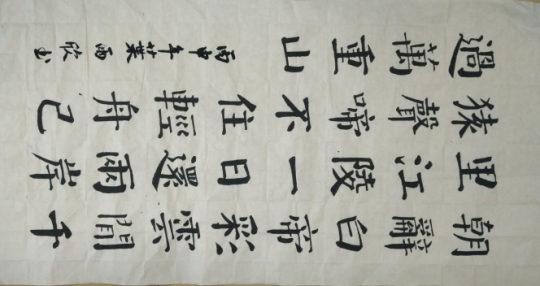 朝辭白帝彩雲間千
里江陵一日還兩岸
猿聲啼不住輕舟已
過萬重山
丙申年葉雨欣書